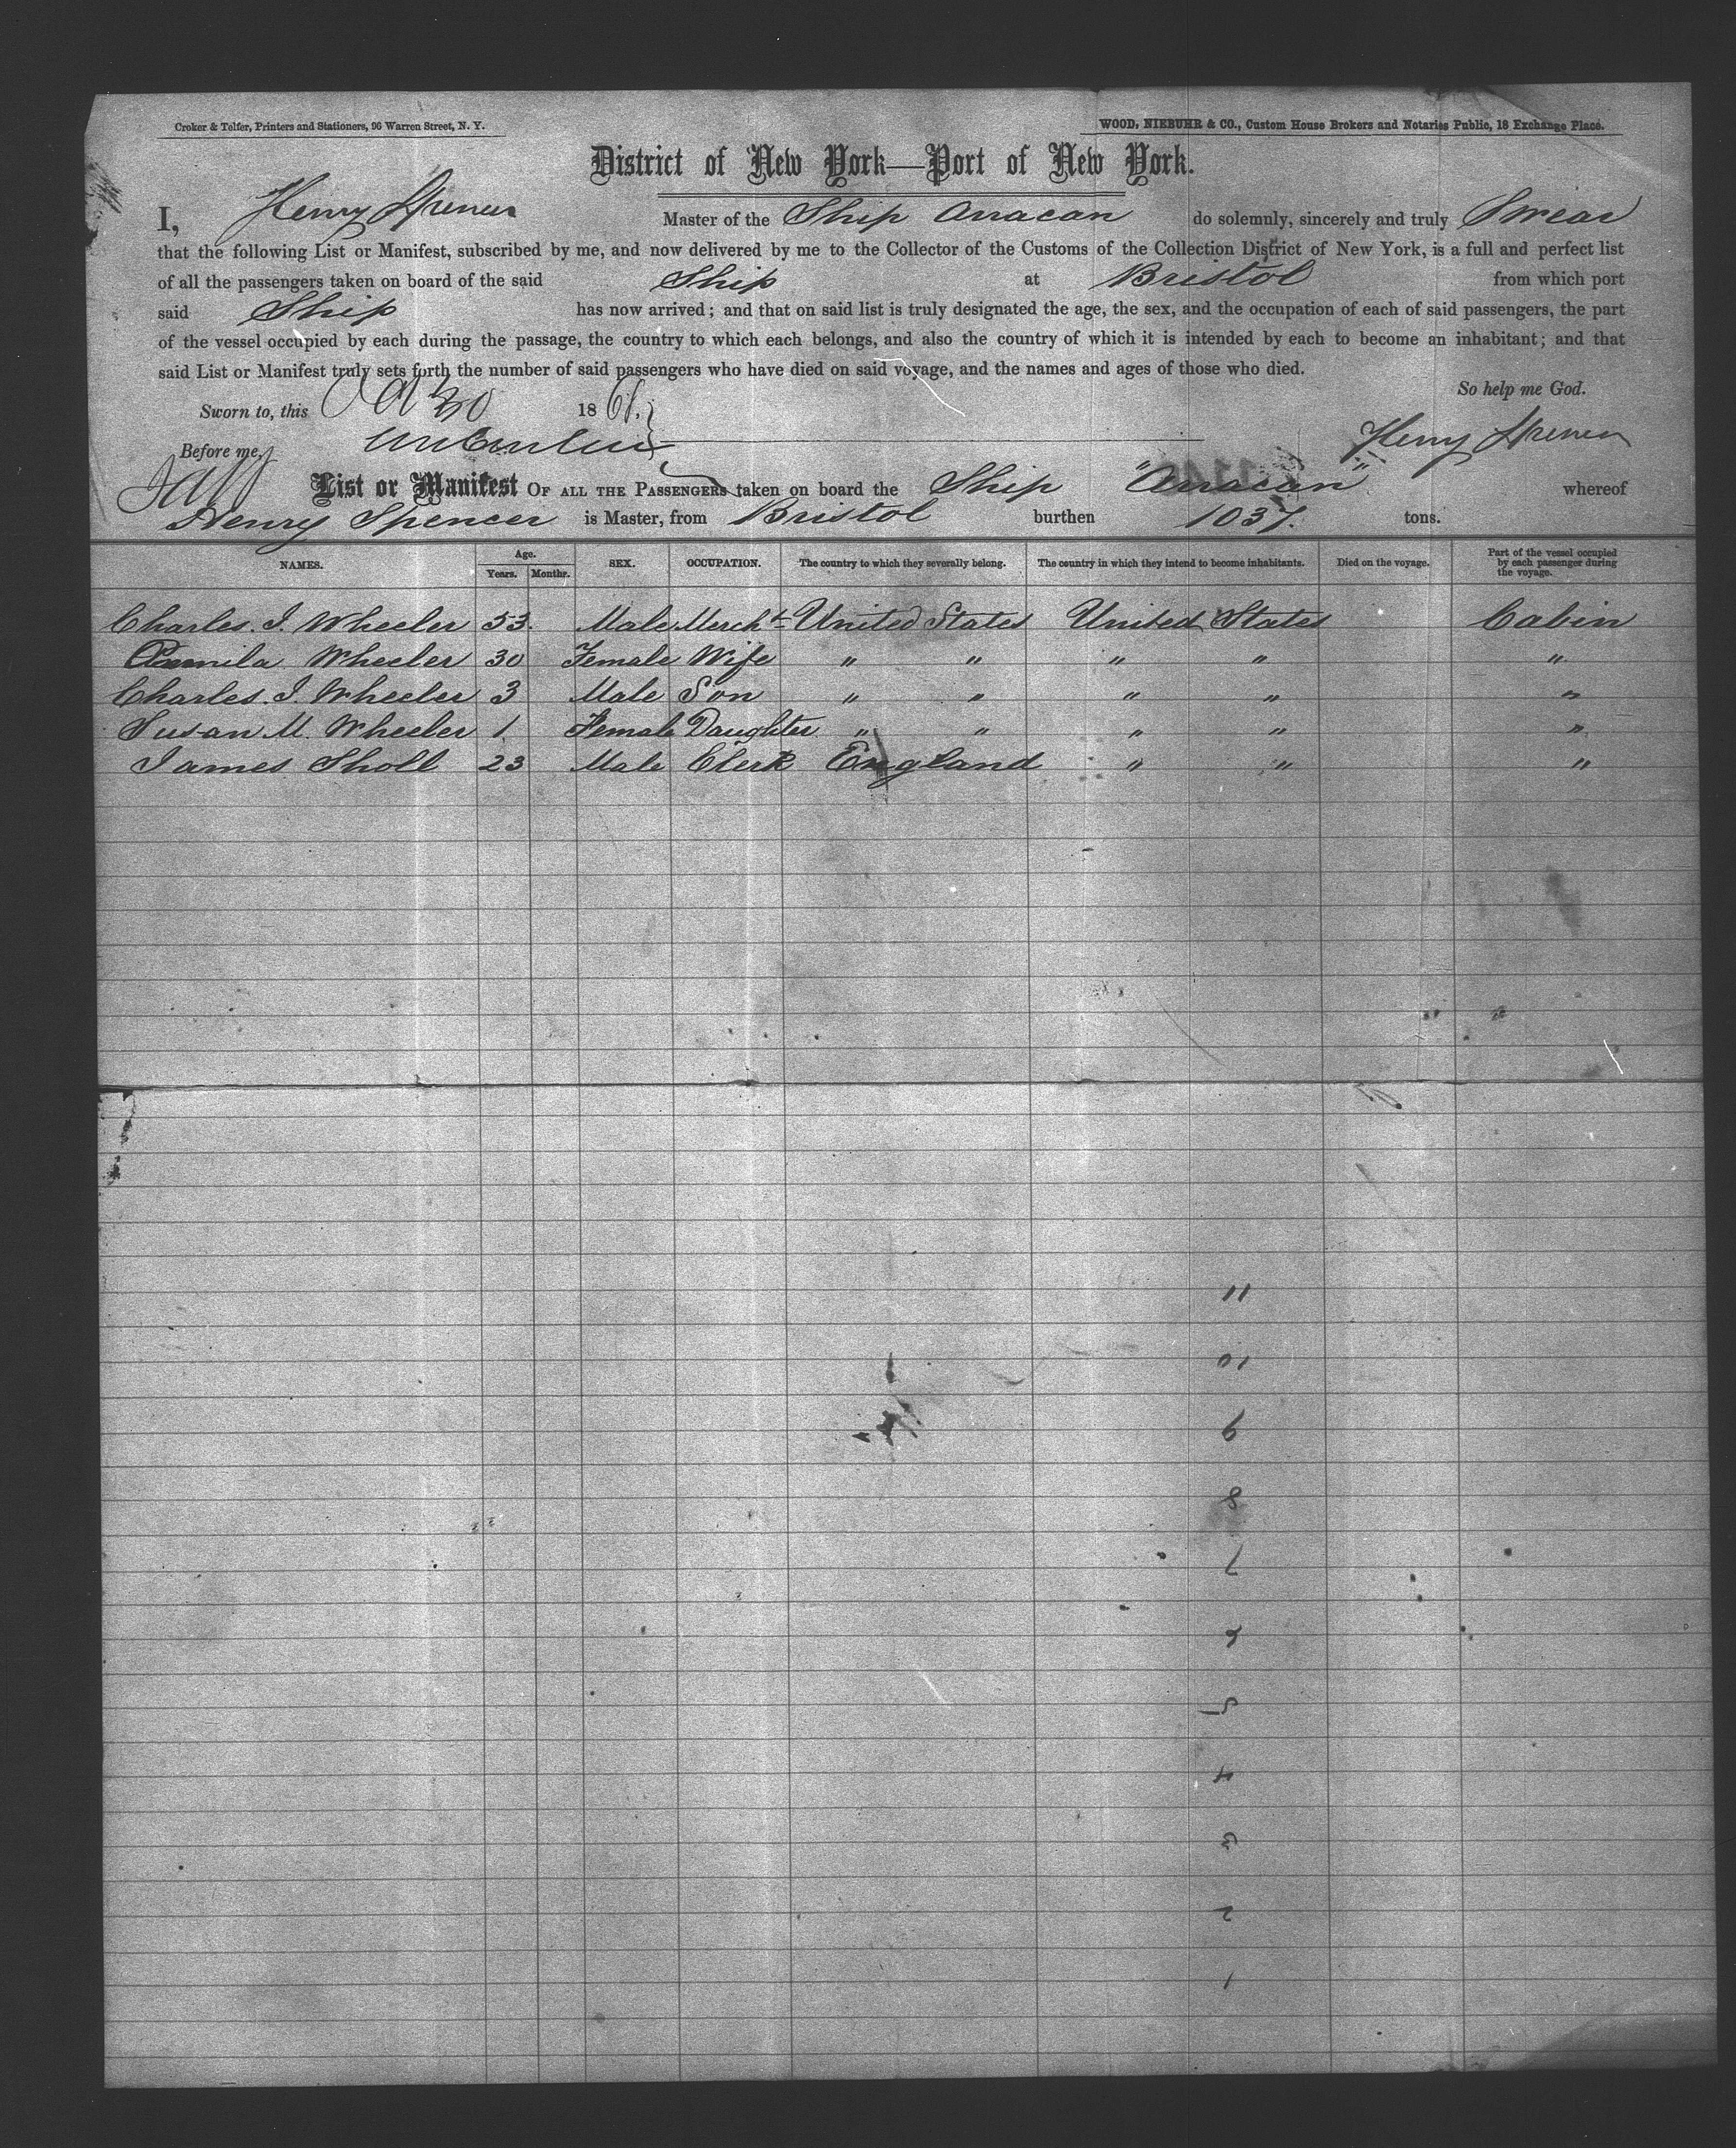 Croker & Telfer, Printers and Stationers, 96 Warren Street, N. Y.
WOOD, NIEBUHR & CO., Custom House Brokers and Notaries Public, 18 Exchange Place.
District of New York—Port of New York.
I, Henry Spencer Master of the Ship Arracan do solemnly, sincerely and truly Swear
that the following List or Manifest, subscribed by me, and now delivered by me to the Collector of the Customs of the Collection District of New York, is a full and perfect list
of all the passengers taken on board of the said Ship at Bristol from which port
said Ship has now arrived; and that on said list is truly designated the age, the sex, and the occupation of each of said passengers, the part
of the vessel occupied by each during the passage, the country to which each belongs, and also the country of which it is intended by each to become an inhabitant; and that
said List or Manifest truly sets forth the number of said passengers who have died on said voyage, and the names and ages of those who died.
So help me God.
Sworn to, this Oct 30 1861.
Before me, Henry Spencer
List or Manifest OF ALL THE PASSENGERS taken on board the Ship "Arracan" whereof
Henry Spencer is Master, from Bristol burthen 1037. tons.
NAMES. Age. Years. Months. SEX. OCCUPATION. The country to which they severally belong. The country in which they intend to become inhabitants. Died on the voyage. Part of the vessel occupied by each passenger during the voyage.
Charles. I. Wheeler 53. Male Mercht United States United States Cabin
Wheeler 30 Female Wife " " " " "
Charles. I. Wheeler 3 Male Son " " " " "
Susan M. Wheeler 1 Female Daughter " " " " "
James Sholl 23 Male Clerk England " " "
11
10
9
8
7
6
5
4
3
2
1